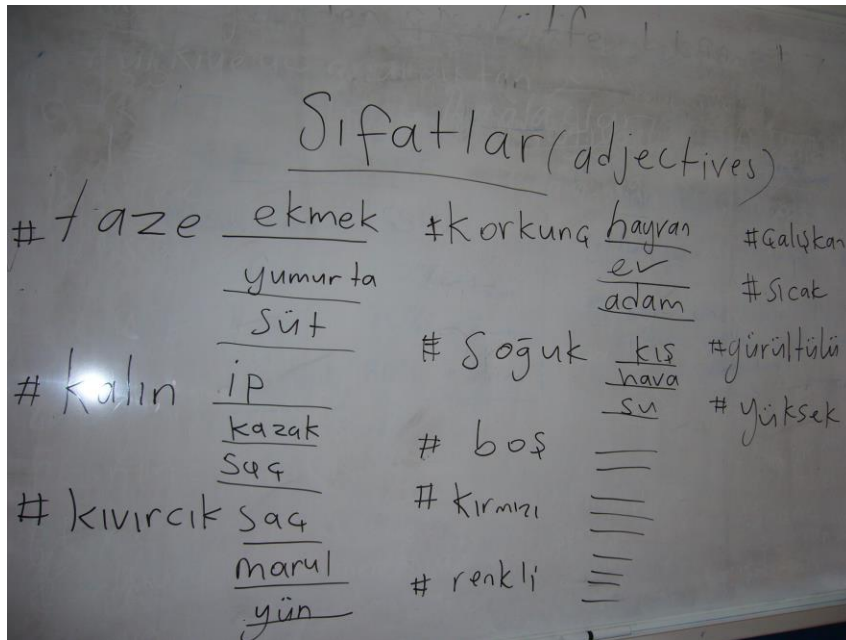 Sıfatlar (adjectives)
# taze ekmek
yumurta
süt
# kalın ip
kazak
saç
# kıvırcık saç
marul
yün
# Korkunç hayvan
ev
adam
# Soğuk kış
hava
su
# boş
# kırmızı
# renkli
# Çalışkan
# Sıcak
# gürültülü
# yüksek